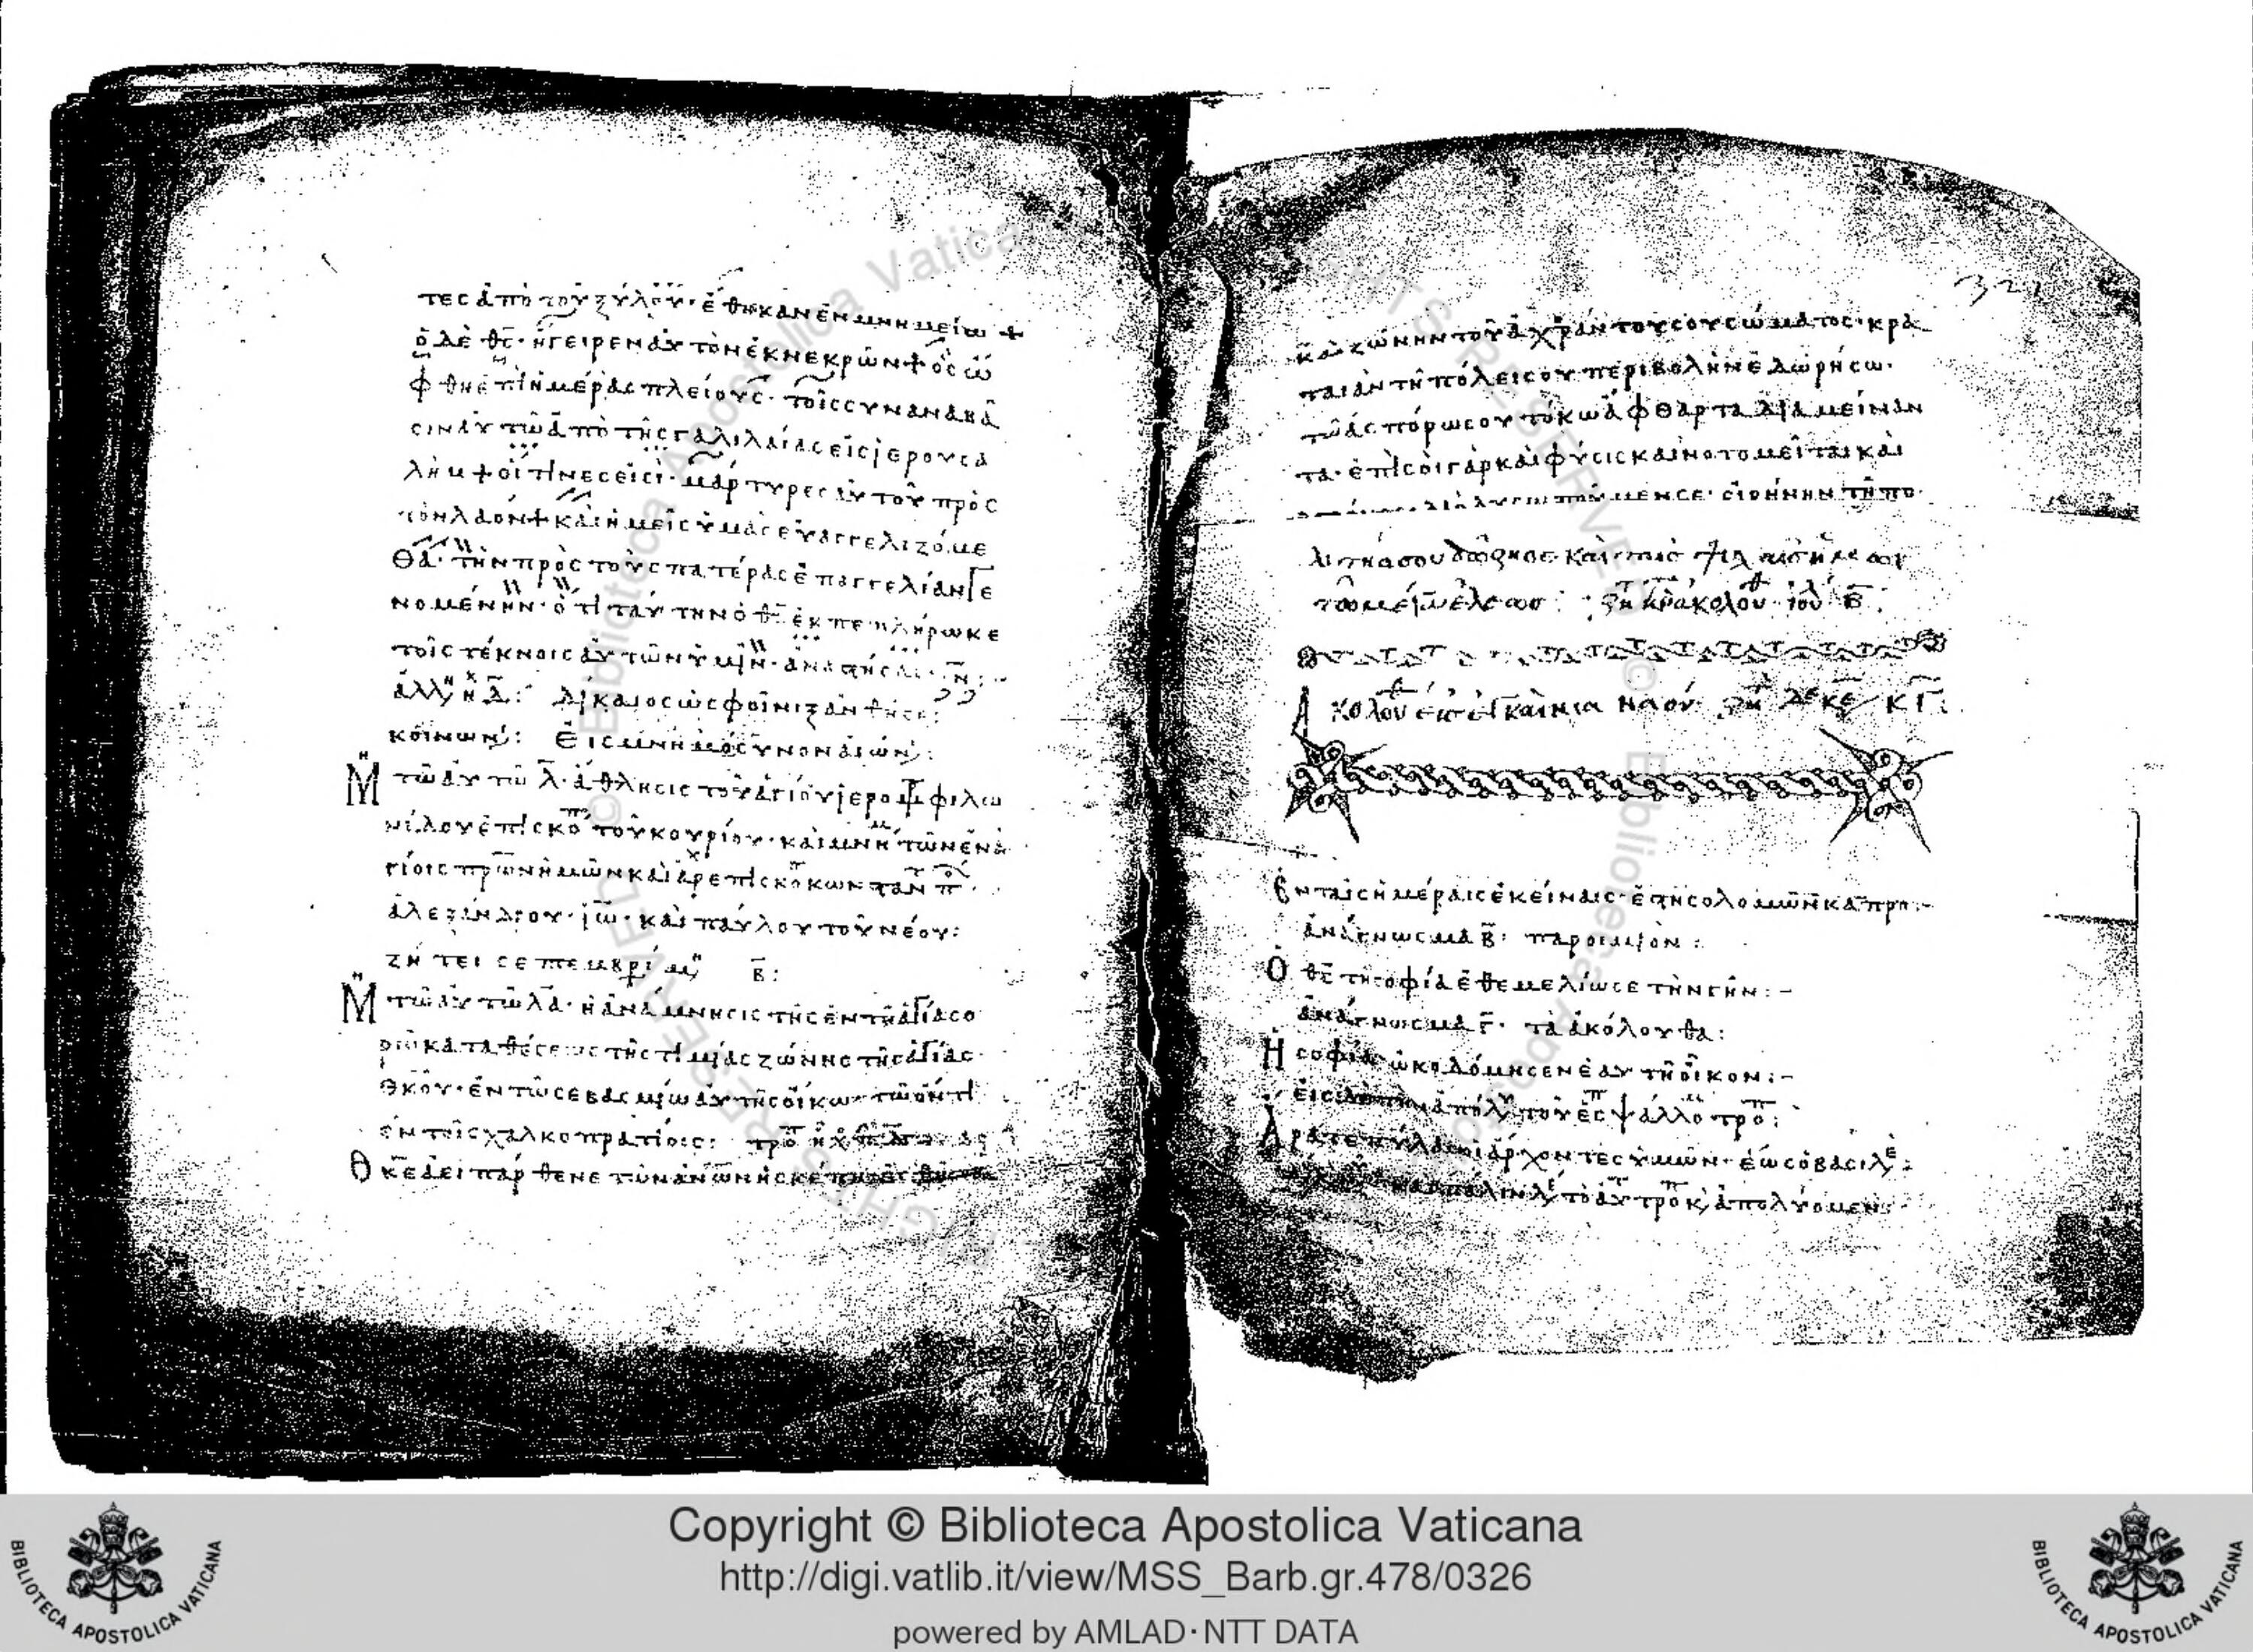 τες ἀπὸ τοῦ ξύλου· ἔθηκαν ἐν μνημείω +
ὁ δὲ θς· ἤγειρεν αὐτὸν ἐκ νεκρῶν + ὃς ὤ
φθη ἐπὶ ἡμέρας πλείους· τοῖς συναναβᾶ
σιν αὐτῶ ἀπὸ τῆς γαλιλαίας εἰς ἱερουσα
λὴμ + οἵτινες εἰσὶ· μάρτυρες αὐτοῦ πρὸς
τὸν λαὸν + καὶ ἡμεῖς ὑμᾶς εὐαγγελιζόμε
θα· τὴν πρὸς τοὺς πατέρας ἐπαγγελίαν γε
νομένην· ὅτι ταύτην ὁ θς ἐκπεπλήρωκε
τοῖς τέκνοις αὐτῶν ὑμῖν· ἀναστήσας ιν:
ἀλλη δ: Δίκαιος ὡς φοῖνιξ ἀνθήσει:
κοινων: Εἰς μνημόσυνον αἰών:
Μ τῶ αὐτῶ λ· ἄθλησις τοῦ ἁγίου ἱερομ φιλω
νίλου ἐπισκο τοῦ κουρίου· καὶ μνη τῶν ἐν ἁ
γίοις πρων ἡμῶν καὶ ἀρχεπισκο κωνσταν π
ἀλεξάνδρου· ιω· καὶ παύλου τοῦ νέου:
ζήτει σεπτεμβρί β:
Μ τῶ αὐτῶ λα· ἡ ἀνάμνησις τῆς ἐν τῆ ἁγία σο
ρῶ καταθέσεως τῆς τιμίας ζώνης τῆς ἁγίας
θκου· ἐν τῶ σεβασμίω αὐτῆς οἴκω τῶ ὄντι
ἐν τοῖς χαλκοπρατίοις: τρο ἠχ
Θκε ἀειπάρθενε τῶν ἀνων ἡ σκέπη
καὶ ζώνην τοῦ ἀχράντου σου σώματος· κρα
ταιὰν τῆ πόλει σου περιβολὴν ἐδωρήσω·
τῶ ἀσπόρω σου τόκω ἄφθαρτα διαμείναν
τα· ἐπὶ σοὶ γὰρ καὶ φύσις καινοτομεῖται καὶ
χρόνος· διὸ δυσωποῦμεν σε· εἰρήνην τῆ πο
λιτεία σου δώρησαι· καὶ ταῖς ψυχαῖς ἡμῶν
τὸ μέγα ἔλεος:
Ακολου εἰς ἐγκαίνια ναοῦ· δεκε κγ:
Ἐν ταῖς ἡμέραις ἐκείναις· ἔστη σολομῶν κα προ:-
ἀνάγνωσμα β· παροιμιῶν:
Ὁ θς τῆ σοφία ἐθεμελίωσε τὴν γῆν:-
ἀνάγνωσμα γ· τὰ ἀκόλουθα:
Ἡ σοφία ὠκοδόμησεν ἑαυτῆ οἶκον:-
εἰς ἀπόλυ τοῦ ἑσ ψάλλο τρο:
Ἄρατε πύλας οἱ ἄρχοντες ὑμῶν· ἕως ὁ βασιλε:
πάλιν λε τὸ αὐ τρο κ ἀπολύομεν
Copyright © Biblioteca Apostolica Vaticana
http://digi.vatlib.it/view/MSS_Barb.gr.478/0326
powered by AMLAD·NTT DATA
BIBLIOTECA APOSTOLICA VATICANA
BIBLIOTECA APOSTOLICA VATICANA